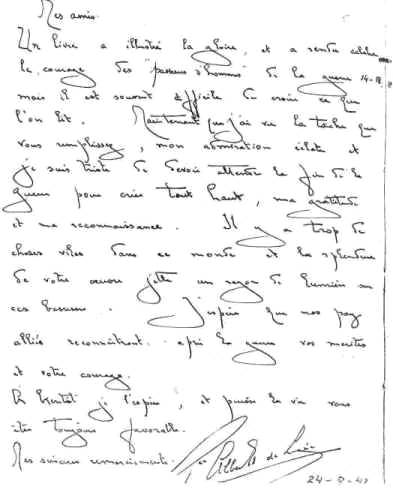 Mes amis.
Un livre a illustré la gloire, et a rendu célèbre
le courage des "passeurs d'hommes" de la guerre 14-18,
mais il est souvent difficile de croire ce que
l'on lit. Maintenant que j'ai vu la tâche que
vous remplissez, mon admiration éclate et
je suis triste de devoir attendre la fin de la
guerre pour crier tout haut, ma gratitude
et ma reconnaissance. Il y a trop de
choses viles dans ce monde et la splendeur
de votre oeuvre jette un rayon de lumière sur
ces bassesses. J'espère que nos pays
alliés reconnaîtront après la guerre vos mérites
et votre courage.
A bientôt je l'espère, et puisse la vie vous
être toujours favorable.
Mes sincères remerciements. de
24-8-42